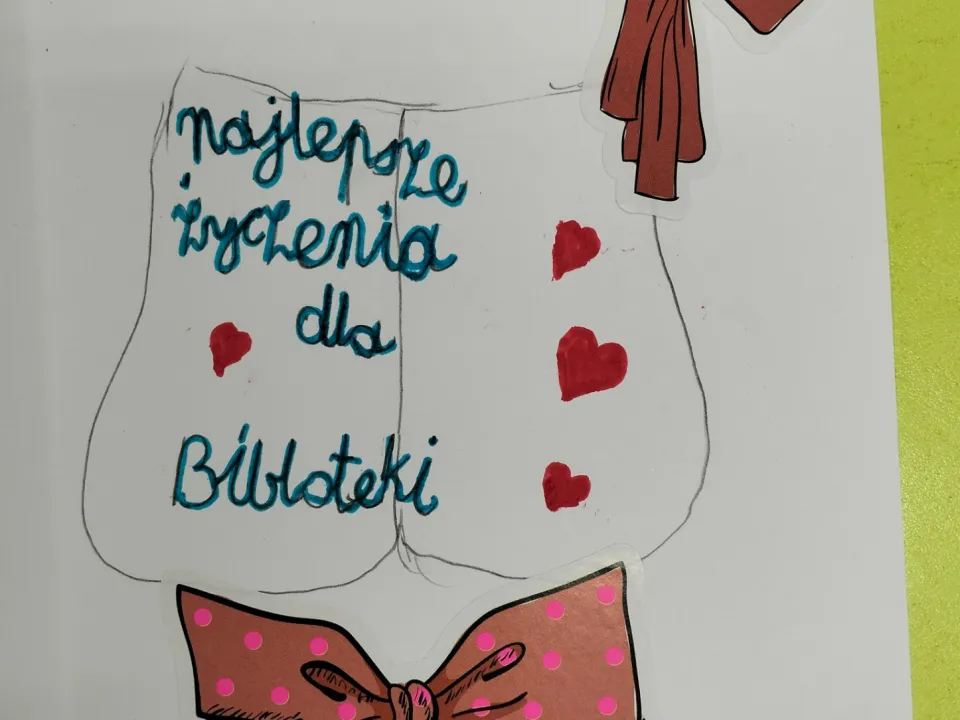 najlepsze
życzenia
dla
Bibloteki